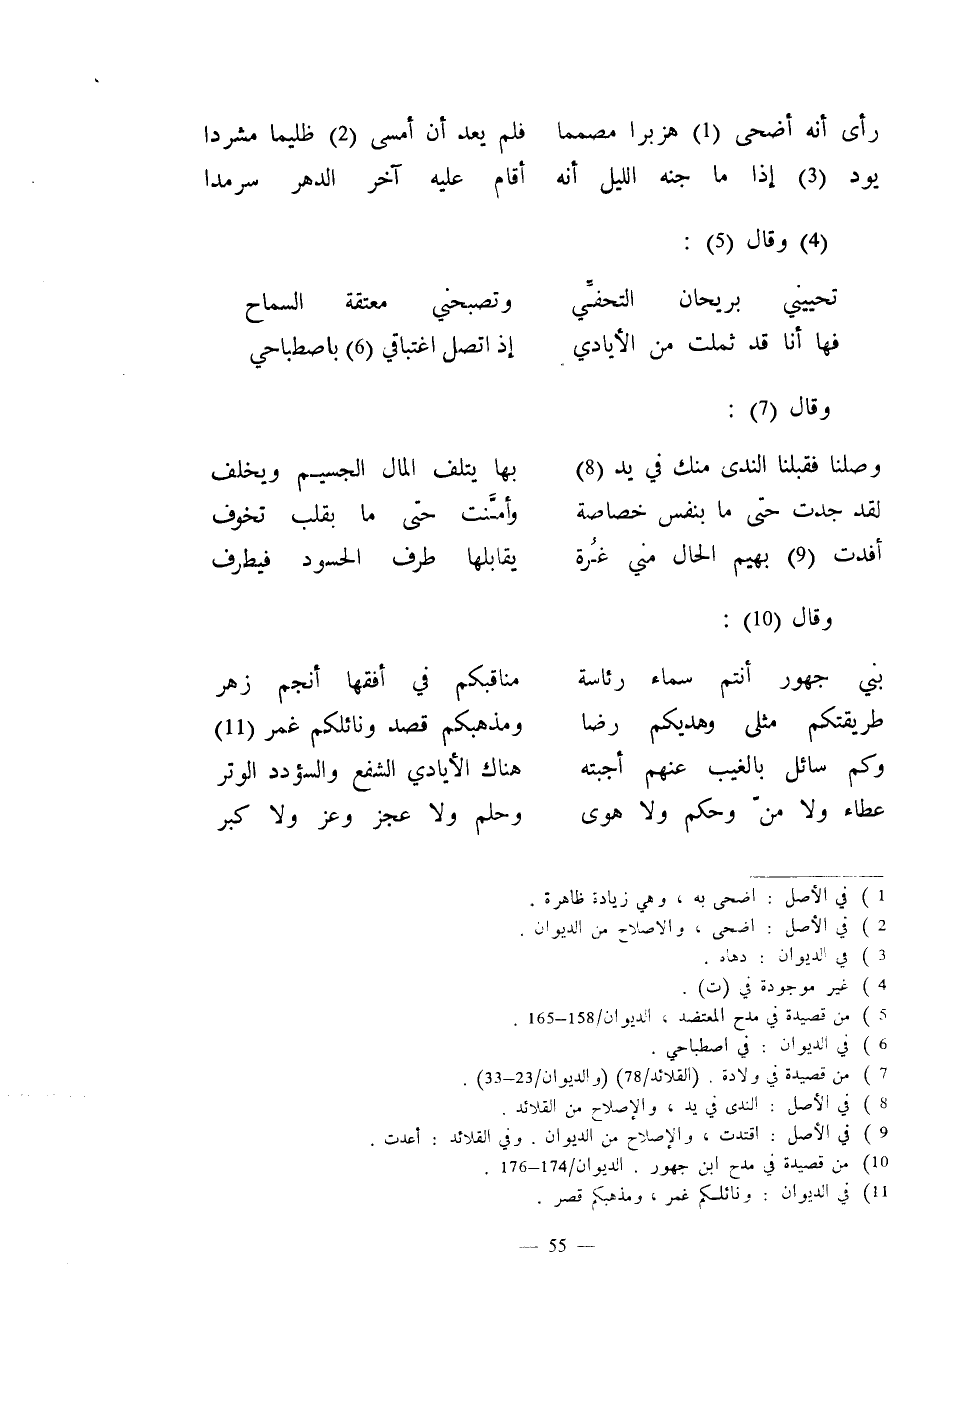 رأى أنه أضحى (1) هزبرا مصمما فلم يعد أن أمسى (2) ظليما مشردا
يود (3) إذا ما جنه الليل أنه أقام عليه آخر الدهر سرمدا
(4) وقال (5) :
تحييني بريحان التحفّي وتصبحني معتقة السماح
فها أنا قد ثملت من الأيادي إذ اتصل اغتباقي (6) باصطباحي
وقال (7) :
وصلنا فقبلنا الندى منك في يد (8) بها يتلف المال الجسيم ويخلف
لقد جدت حتّى ما بنفس خصاصة وأمَّنت حتى ما بقلب تخوف
أفدت (9) بهيم الحال مني غُرة يقابلها طرف الحسود فيطرف
وقال (10) :
بني جهور أنتم سماء رئاسة مناقبكم في أفقها أنجم زهر
طريقتكم مثلى وهديكم رضا ومذهبكم قصد ونائلكم غمر (11)
وكم سائل بالغيب عنهم أجبته هناك الأيادي الشفع والسؤدد الوتر
عطاء ولا منّ وحكم ولا هوى وحلم ولا عجز وعز ولا كبر
1 ) في الأصل : اضحى به ، وهي زيادة ظاهرة .
2 ) في الأصل : اضحى ، والاصلاح من الديوان .
3 ) في الديوان : دهاه .
4 ) غير موجودة في (ت) .
5 ) من قصيدة في مدح المعتضد ، الديوان/158–165 .
6 ) في الديوان : في اصطباحي .
7 ) من قصيدة في ولادة . (القلائد/78) (والديوان/23–33) .
8 ) في الأصل : الندى في يد ، والإصلاح من القلائد .
9 ) في الأصل : اقتدت ، والإصلاح من الديوان . وفي القلائد : أعدت .
10) من قصيدة في مدح ابن جهور . الديوان/174–176 .
11) في الديوان : ونائلكم غمر ، ومذهبكم قصر .
— 55 —